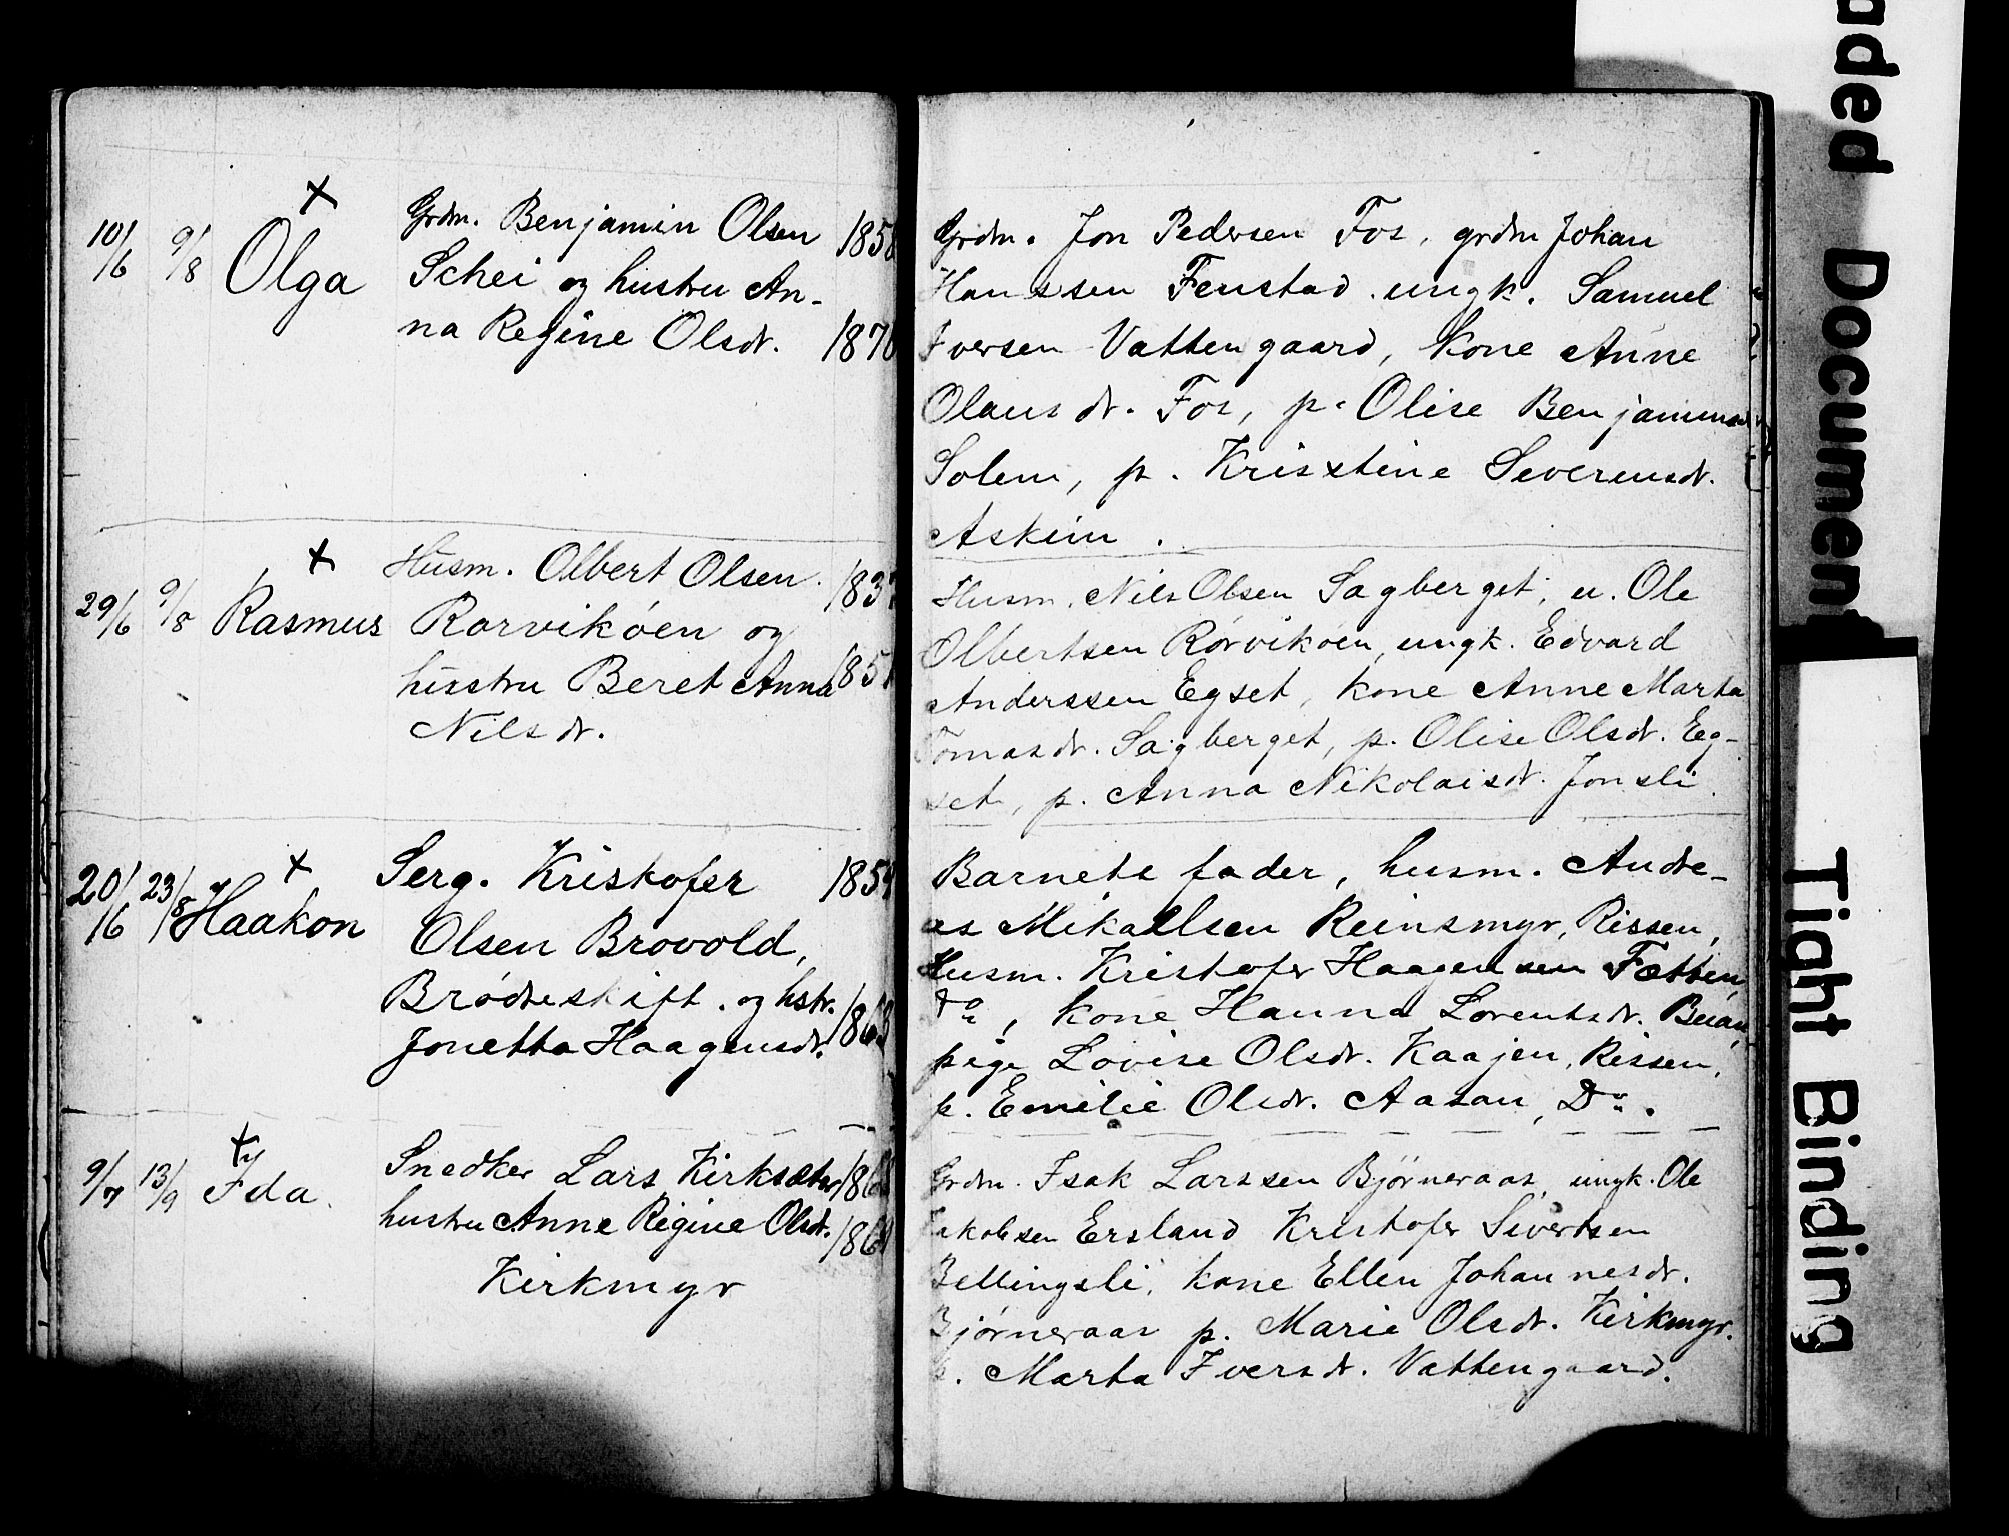 10/6 9/8 Olga
Grdm. Benjamin Olsen 1858
Schei og hustru An-
na Regine Olsdt. 1870
Grdm. Jon Pedersen Fos, grdm Johan
Hanssen Fenstad ungk. Samuel
Iversen Vattengaard, kone Anne
Olausdt. Fos, p. Olise Benjaminsdt.
Solem, p. Kristine Severensdt.
Askim.
29/6 9/8 Rasmus
Husm. Olbert Olsen 1837
Rørvikøen og
hustru Beret Anna 1851
Nilsdt.
Husm. Nils Olsen Sagberget, u. Ole
Olbertsen Rørvikøen, ungk. Edvard
Anderssen Egset, kone Anne Marta
Tomasdt. Sagberget, p. Olise Olsdt. Eg-
set, p. Anna Nikolaisdt. Jonsli.
20/6 23/8 Haakon
Serg. Kristofer 1859
Olsen Brovold,
Brødreskift. og hstr.
Jonetta Haagensdt. 1863
Barnets fader, husm. Andre-
as Mikalsen Reinsmyr, Rissen,
Husm. Kristofer Haagensen Fætten,
do, kone Hanna Lorentsdt. Beian,
pige Lovise Olsdt. Kaajen, Rissen,
p. Emelie Olsdt. Aasan, Do.
9/7 13/9 Ida.
Snedker Lars Kirksæter
hustru Anne Regine Olsdt.
Kirkmyr
Grdm. Isak Larssen Bjørneraas, ungk. Ole
Jakobsen Ersland Kristofer Sivertsen
Bellingsli, kone Ellen Johannesdt.
Bjørneraas p. Marie Olsdt. Kirkmyr.
p. Marta Iversdt. Vattengaard.
aded Document
Tight Binding